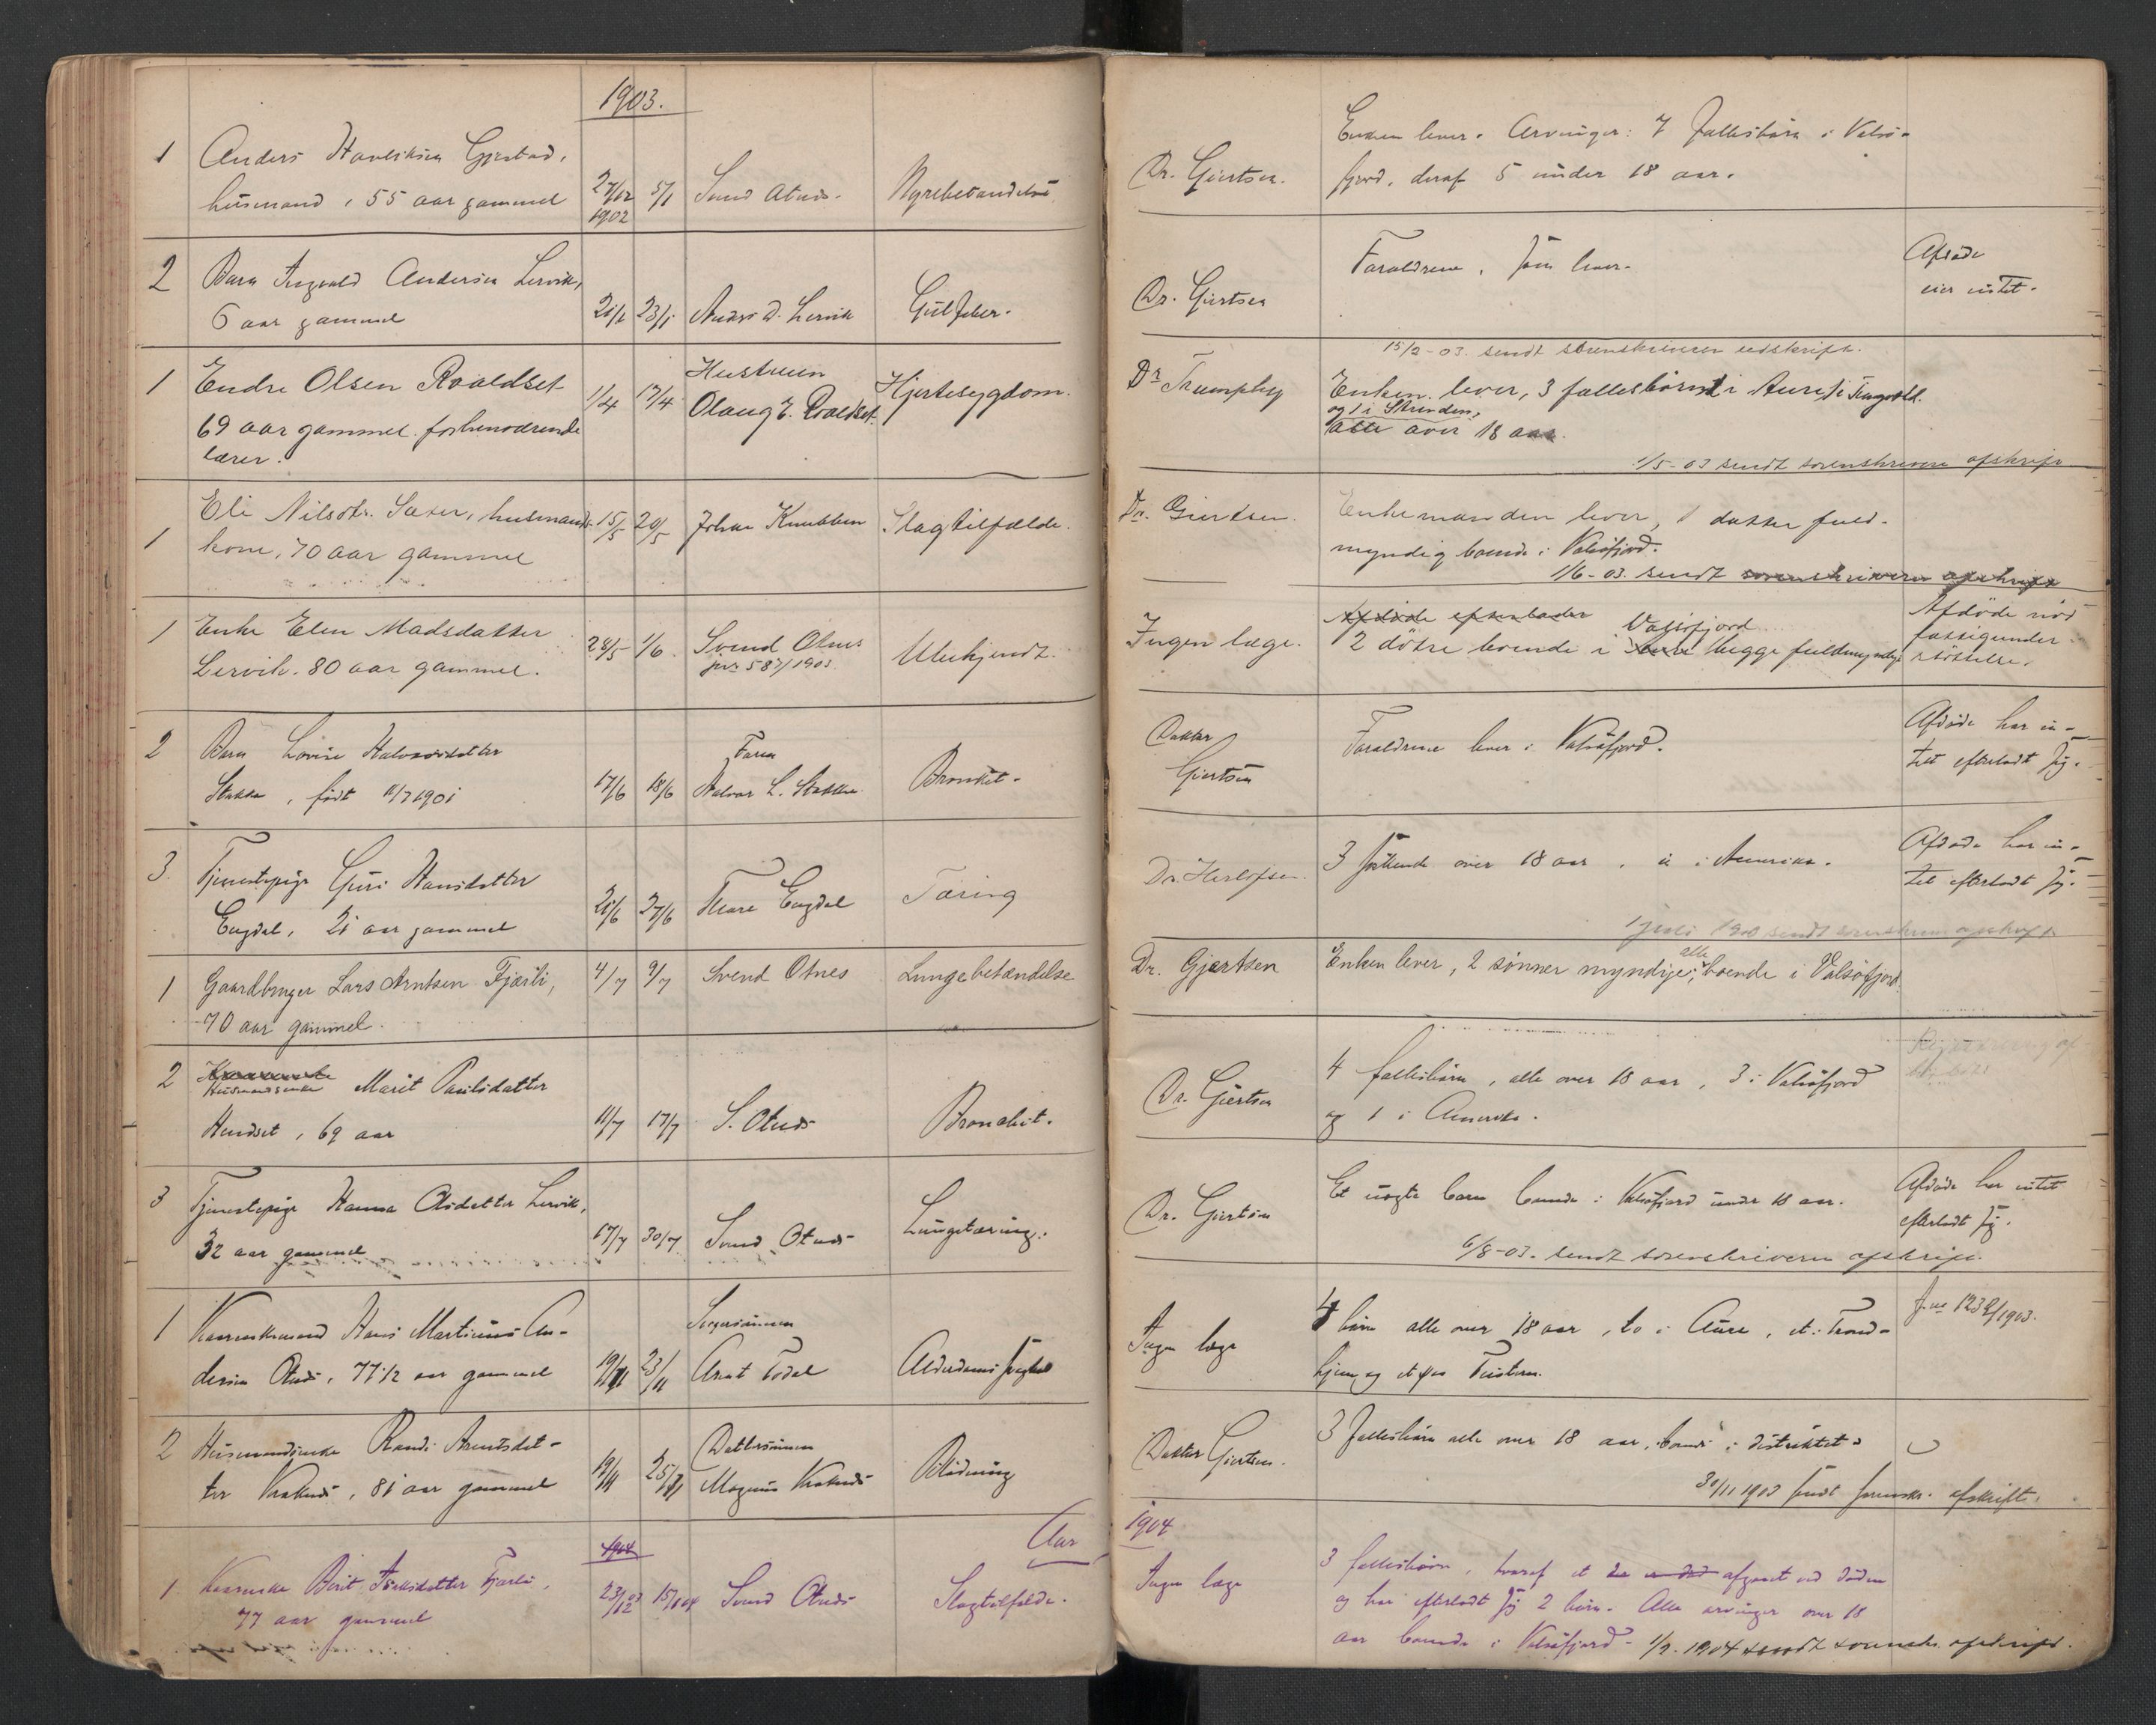 1903.
1 Anders Gjestad,
husmand, 55 aar gammel 27/12 1902 5/1 Svend Otnes. Nyrebetændelse
2 Barn Ingvald Andersen Lervik,
6 aar gammel 21/1 23/1 Anders A. Lervik Gulfeber.
1 Endre Olsen Roaldset
69 aar gammel. forhenværende
lærer. 1/4 17/4 Hustruen
Olaug E. Roaldset. Hjertesygdom.
1 Eli Nilsdtr. Sæter, husmands-
kone, 70 aar gammel 15/5 20/5 Johan Knubben Slagtilfælde.
1 Enke Elen Madsdatter
Lervik. 80 aar gammel. 28/5 1/6 Svend Otnes
jnr 587/1903. Ubekjendt.
2 Barn Lovise Halvorsdatter
Stakken, født 11/7 1901 17/6 18/6 Faren
Halvor L. Stakken Bronkit.
3. Tjenestepige Guri Hansdatter
Engdal, 21 aar gammel 21/6 27/6 Engdal Tæring
1 Gaardbruger Lars Arntsen Fjærli,
70 aar gammel. 4/7 9/7 Svend Otnes Lungebetændelse
2 Husmandsenke Marit Paulsdatter
Hendset, 69 aar 11/7 17/7 S. Otnes Bronchit.
3 Tjenestepige Hanna Olsdatter Lervik,
32 aar gammel 17/7 30/7 Svend Otnes Lungetæring.
1 Kaarenkemand Hans Martinus An-
dersen Otnes, 77 1/2 aar gammel 19/11 23/11 Svigersønnen
Arnt Todal Alderdomssvaghed
2 Husmandsenke Randi Arntsdat-
ter Kraknes, 81 aar gammel 19/11 25/11 Dattersønnen
Magnus Kraknes Blødning
Aar
1904
1. Kaarenke Berit Fjærli,
77 aar gammel 23/12 03 15/1 04 Svend Otnes Slagtilfælde.
Dr. Giertsen. Enken lever. Arvinger: 7 fællesbørn i Valsø-
fjord, deraf 5 under 18 aar.
Dr. Giertsen Forældrene lever. Afdøde
eier intet.
15/2-03. sendt sorenskriveren udskrift.
Dr Trampley Enken lever, 3 fællesbørn 1 i Aure, 1 i Tingvold.
og 1 i Strinden,
alle over 18 aar.
1/5-03 sendt sorenskriveren afskrift
Dr. Giertsen. Enkemanden lever, 1 datter fuld-
myndig boende i Valsøfjord.
1/6-03. sendt sorenskriveren afskrift
Ingen læge. Afdøde efterlader Valsøfjord
2 døtre boende i begge fuldmyndige Afdøde nød
fattigunder-
støttelse.
Doktor
Giertsen Forældrene lever i Valsøfjord. Afdøde har in-
tet efterladt sig.
Dr. Herlofsen. 3 søskende over 18 aar, i Amerika. Afdøde har in-
tet efterladt sig.
1 juli 190 sendt sorenskriveren afskrift
Dr. Gjærtsen Enken lever, 2 sønner myndige, alle boende i Valsøfjord.
Dr. Giertsen 4 fællesbørn, alle over 18 aar, 3 i Valsøfjord
og 1 i Amerika.
Dr. Giertsen Et uægte barn boende i Valsøfjord under 18 aar. Afdøde har intet
efterladt sig.
6/8-03. sendt sorenskriveren afskrift.
Ingen læge 4 børn alle over 18 aar, to i Aure, et i Trond-
hjem og et paa Tustern. J.no 1232/1903.
Doktor Giertsen. 3 fællesbørn alle over 18 aar, boende i distriktet.
30/11 1903 sendt sorenskr. afskrift.
1904
Ingen læge 3 fællesbørn, hvoraf et afgaaet ved døden
og har efterladt sig 2 børn. Alle arvinger over 18
aar boende i Valsøfjord. 1/2. 1904 sendt sorenskr. afskrift.